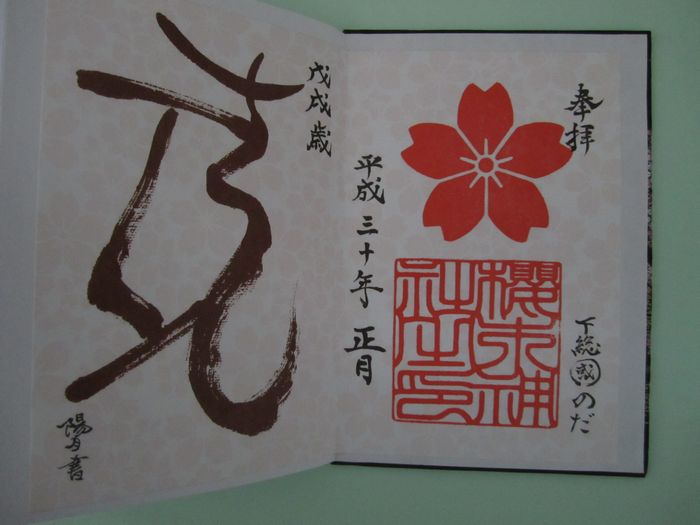 奉拝
下総國のだ
櫻木神
社之印
平成三十年 正月
戊戌歳